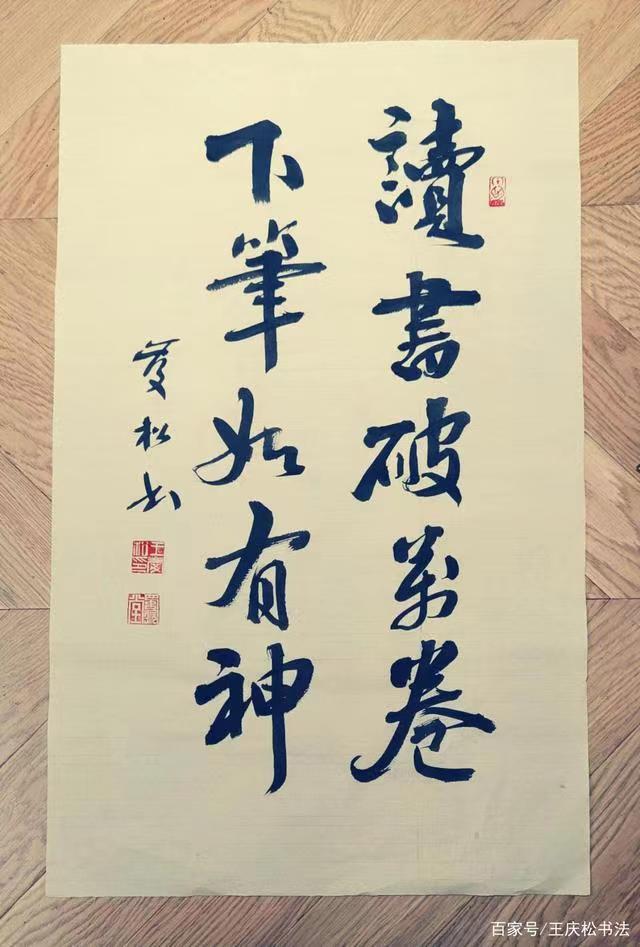 讀書破萬卷
下筆如有神
慶松书
百家号/王庆松书法